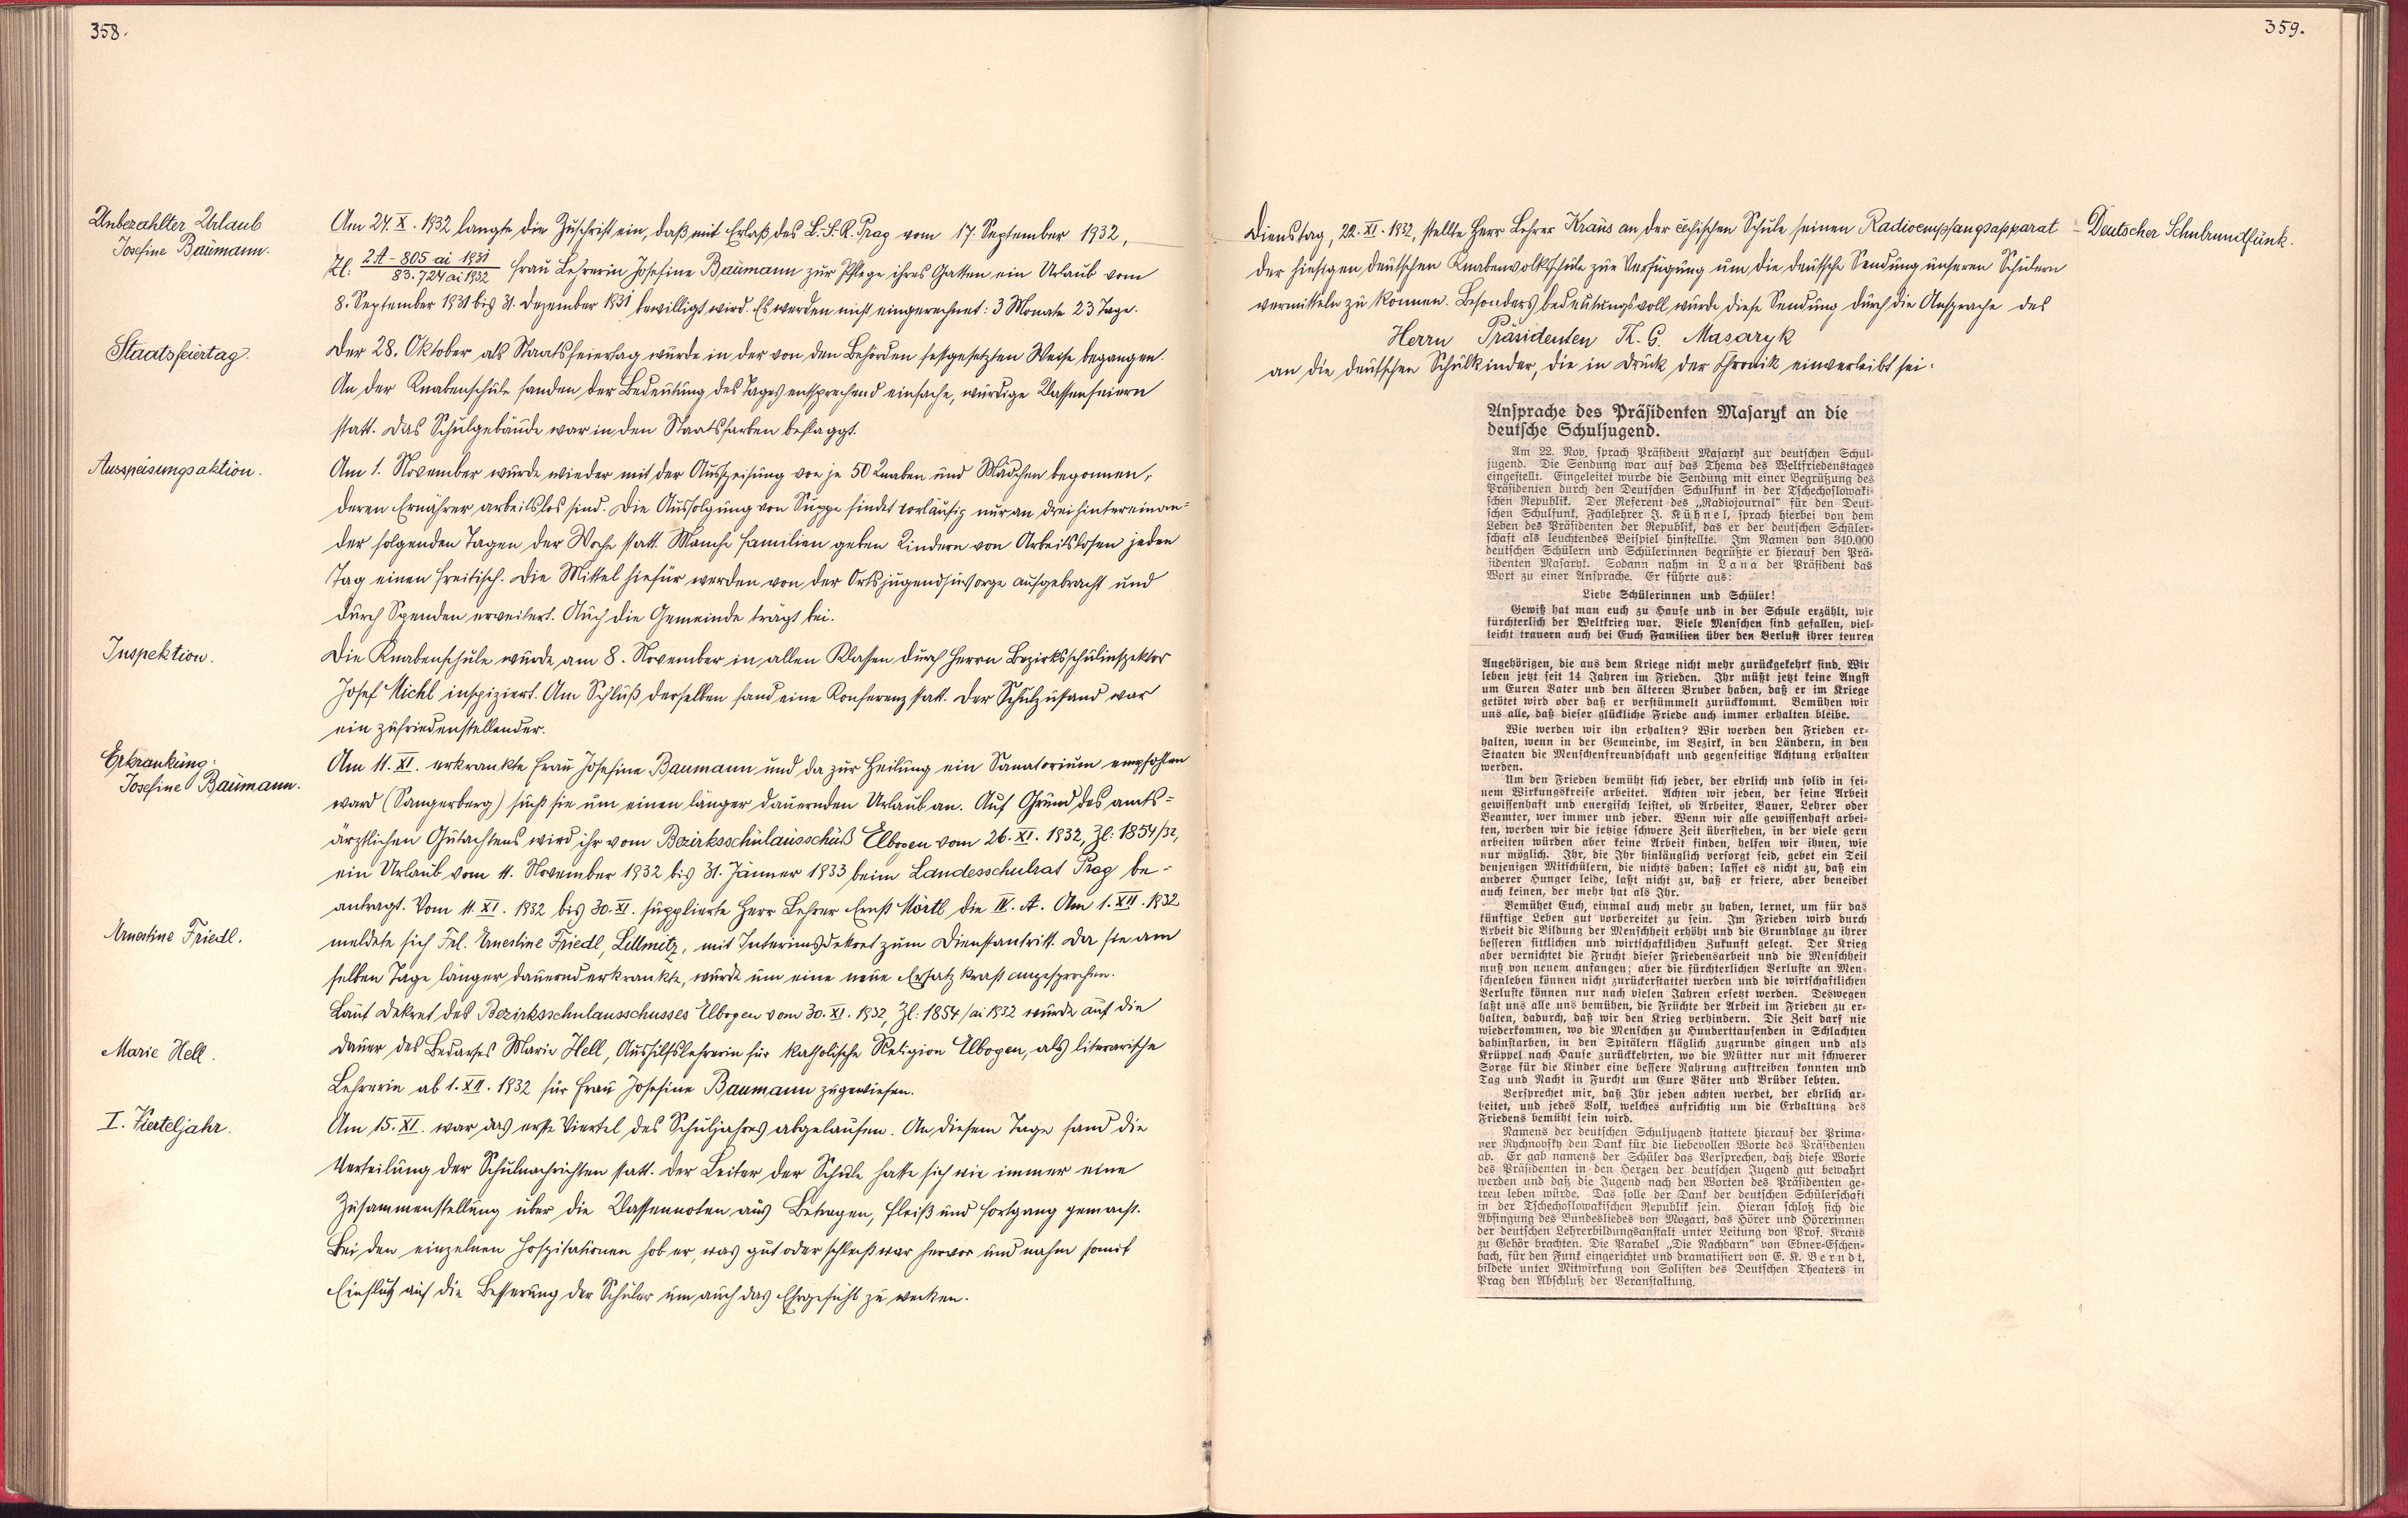 358.
Unbezahlter Urlaub
Josefine Baumann.
Am 24. X. 1932 langte die Zuschrift ein, daß mit Erlaß des L.-S.R. Prag vom 17. September 1932,
Zl: 2A - 805 ai 1931 / 83.724 ai 1932 Frau Lehrerin Josefine Baumann zur Pflege ihres Gatten ein Urlaub vom
8. September 1931 bis 31. Dezember 1931 bewilligt wird. Es werden nicht eingerechnet: 3 Monate 23 Tage.
Staatsfeiertag.
Der 28. Oktober als Staatsfeiertag wurde in der von den Behörden festgesetzten Weise begangen.
An der Knabenschule fanden der Bedeutung des Tages entsprechend einfache, würdige Klassenfeiern
statt. Das Schulgebäude war in den Staatsfarben beflaggt.
Ausspeisungsaktion.
Am 1. November wurde wieder mit der Ausspeisung von je 50 Knaben und Mädchen begonnen,
deren Ernährer arbeitslos sind. Die Ausfolgung von Suppe findet vorläufig nur an drei hintereinan=
der folgenden Tagen der Woche statt. Manche Familien geben Kindern von Arbeitslosen jeden
Tag einen Freitisch. Die Mittel hiefür werden von der Ortsjugendfürsorge aufgebracht und
durch Spenden erweitert. Auch die Gemeinde trägt bei.
Inspektion.
Die Knabenschule wurde am 8. November in allen Klassen durch Herrn Bezirksschulinspektor
Josef Michl inspiziert. Am Schluß derselben fand eine Konferenz statt. Der Schulzustand war
ein zufriedenstellender.
Erkrankung:
Josefine Baumann.
Am 11. XI. erkrankte Frau Josefine Baumann und da zur Heilung ein Sanatorium empfohlen
ward (Sangerberg) sucht sie um einen länger dauernden Urlaub an. Auf Grund des amts=
ärztlichen Gutachtens wird ihr vom Bezirksschulausschuß Elbogen vom 26. XI. 1932, Zl: 1854/32,
ein Urlaub vom 11. November 1932 bis 31. Jänner 1933 beim Landesschulrat Prag be=
antragt. Vom 11. XI. 1932 bis 30. XI. supplierte Herr Lehrer Ernst Mörtl die IV. A. Am 1. XII. 1932
Ernestine Friedl.
meldete sich Frl. Ernestine Friedl, Littmitz, mit Interimsdekret zum Dienstantritt. Da sie am
selben Tage länger dauernd erkrankte, wurde um eine neue Ersatzkraft angesprochen.
Laut Dekret des Bezirksschulausschusses Elbogen vom 30. XI. 1932, Zl: 1854/ai 1932 wurde auf die
Marie Hell.
Dauer des Bedarfes Marie Hell, Aushilfslehrerin für katholische Religion Elbogen, als literarische
Lehrerin ab 1. XII. 1932 für Frau Josefine Baumann zugewiesen.
I. Vierteljahr.
Am 15. XI. war das erste Viertel des Schuljahres abgelaufen. An diesem Tage fand die
Verteilung der Schulnachrichten statt. Der Leiter der Schule hatte sich wie immer eine
Zusammenstellung über die Klassennoten aus Betragen, Fleiß und Fortgang gemacht.
Bei den einzelnen Hospitationen hob er, was gut oder schlecht war hervor und nahm somit
Einfluß auf die Besserung der Schüler um auch das Ehrgefühl zu wecken.
359.
Dienstag, 22. XI. 1932, stellte Herr Lehrer Kraus an der čechischen Schule seinen Radioempfangsapparat
- Deutscher Schulrundfunk.
der hiesigen deutschen Knabenvolksschule zur Verfügung um die deutsche Sendung unseren Schülern
vermitteln zu können. Besonders bedeutungsvoll wurde diese Sendung durch die Ansprache des
Herrn Präsidenten T. G. Masaryk
an die deutschen Schulkinder, die in Druck der Chronik einverleibt sei.
Ansprache des Präsidenten Masaryk an die
deutsche Schuljugend.
Am 22. Nov. sprach Präsident Masaryk zur deutschen Schul-
jugend. Die Sendung war auf das Thema des Weltfriedenstages
eingestellt. Eingeleitet wurde die Sendung mit einer Begrüßung des
Präsidenten durch den Deutschen Schulfunk in der Tschechoslowaki-
schen Republik. Der Referent des „Radiojournal“ für den Deut-
schen Schulfunk, Fachlehrer J. Kühnel, sprach hierbei von dem
Leben des Präsidenten der Republik, das er der deutschen Schüler-
schaft als leuchtendes Beispiel hinstellte. Im Namen von 340.000
deutschen Schülern und Schülerinnen begrüßte er hierauf den Prä-
sidenten Masaryk. Sodann nahm in Lana der Präsident das
Wort zu einer Ansprache. Er führte aus:
Liebe Schülerinnen und Schüler!
Gewiß hat man euch zu Hause und in der Schule erzählt, wie
fürchterlich der Weltkrieg war. Viele Menschen sind gefallen, viel-
leicht trauern auch bei Euch Familien über den Verlust ihrer teuren
Angehörigen, die aus dem Kriege nicht mehr zurückgekehrt sind. Wir
leben jetzt seit 14 Jahren im Frieden. Ihr müßt jetzt keine Angst
um Euren Vater und den älteren Bruder haben, daß er im Kriege
getötet wird oder daß er verstümmelt zurückkommt. Bemühen wir
uns alle, daß dieser glückliche Friede auch immer erhalten bleibe.
Wie werden wir ihn erhalten? Wir werden den Frieden er-
halten, wenn in der Gemeinde, im Bezirk, in den Ländern, in den
Staaten die Menschenfreundschaft und gegenseitige Achtung erhalten
werden.
Um den Frieden bemüht sich jeder, der ehrlich und solid in sei-
nem Wirkungskreise arbeitet. Achten wir jeden, der seine Arbeit
gewissenhaft und energisch leistet, ob Arbeiter, Bauer, Lehrer oder
Beamter, wer immer und jeder. Wenn wir alle gewissenhaft arbei-
ten, werden wir die jetzige schwere Zeit überstehen, in der viele gern
arbeiten würden aber keine Arbeit finden, helfen wir ihnen, wie
nur möglich. Ihr, die Ihr hinlänglich versorgt seid, gebet ein Teil
denjenigen Mitschülern, die nichts haben; lasset es nicht zu, daß ein
anderer Hunger leide, laßt nicht zu, daß er friere, aber beneidet
auch keinen, der mehr hat als Ihr.
Bemühet Euch, einmal auch mehr zu haben, lernet, um für das
künftige Leben gut vorbereitet zu sein. Im Frieden wird durch
Arbeit die Bildung der Menschheit erhöht und die Grundlage zu ihrer
besseren sittlichen und wirtschaftlichen Zukunft gelegt. Der Krieg
aber vernichtet die Frucht dieser Friedensarbeit und die Menschheit
muß von neuem anfangen; aber die fürchterlichen Verluste an Men-
schenleben können nicht zurückerstattet werden und die wirtschaftlichen
Verluste können nur nach vielen Jahren ersetzt werden. Deswegen
laßt uns alle uns bemühen, die Früchte der Arbeit im Frieden zu er-
halten, dadurch, daß wir den Krieg verhindern. Die Zeit darf nie
wiederkommen, wo die Menschen zu Hunderttausenden in Schlachten
dahinstarben, in den Spitälern kläglich zugrunde gingen und als
Krüppel nach Hause zurückkehrten, wo die Mütter nur mit schwerer
Sorge für die Kinder eine bessere Nahrung auftreiben konnten und
Tag und Nacht in Furcht um Eure Väter und Brüder lebten.
Versprechet mir, daß Ihr jeden achten werdet, der ehrlich ar-
beitet, und jedes Volk, welches aufrichtig um die Erhaltung des
Friedens bemüht sein wird.
Namens der deutschen Schuljugend stattete hierauf der Prima-
ner Rychnovsky den Dank für die liebevollen Worte des Präsidenten
ab. Er gab namens der Schüler das Versprechen, daß diese Worte
des Präsidenten in den Herzen der deutschen Jugend gut bewahrt
werden und daß die Jugend nach den Worten des Präsidenten ge-
treu leben würde. Das solle der Dank der deutschen Schülerschaft
in der Tschechoslowakischen Republik sein. Hieran schloß sich die
Absingung des Bundesliedes von Mozart, das Hörer und Hörerinnen
der deutschen Lehrerbildungsanstalt unter Leitung von Prof. Kraus
zu Gehör brachten. Die Parabel „Die Nachbarn“ von Ebner-Eschen-
bach, für den Funk eingerichtet und dramatisiert von E. K. Berndt,
bildete unter Mitwirkung von Solisten des Deutschen Theaters in
Prag den Abschluß der Veranstaltung.